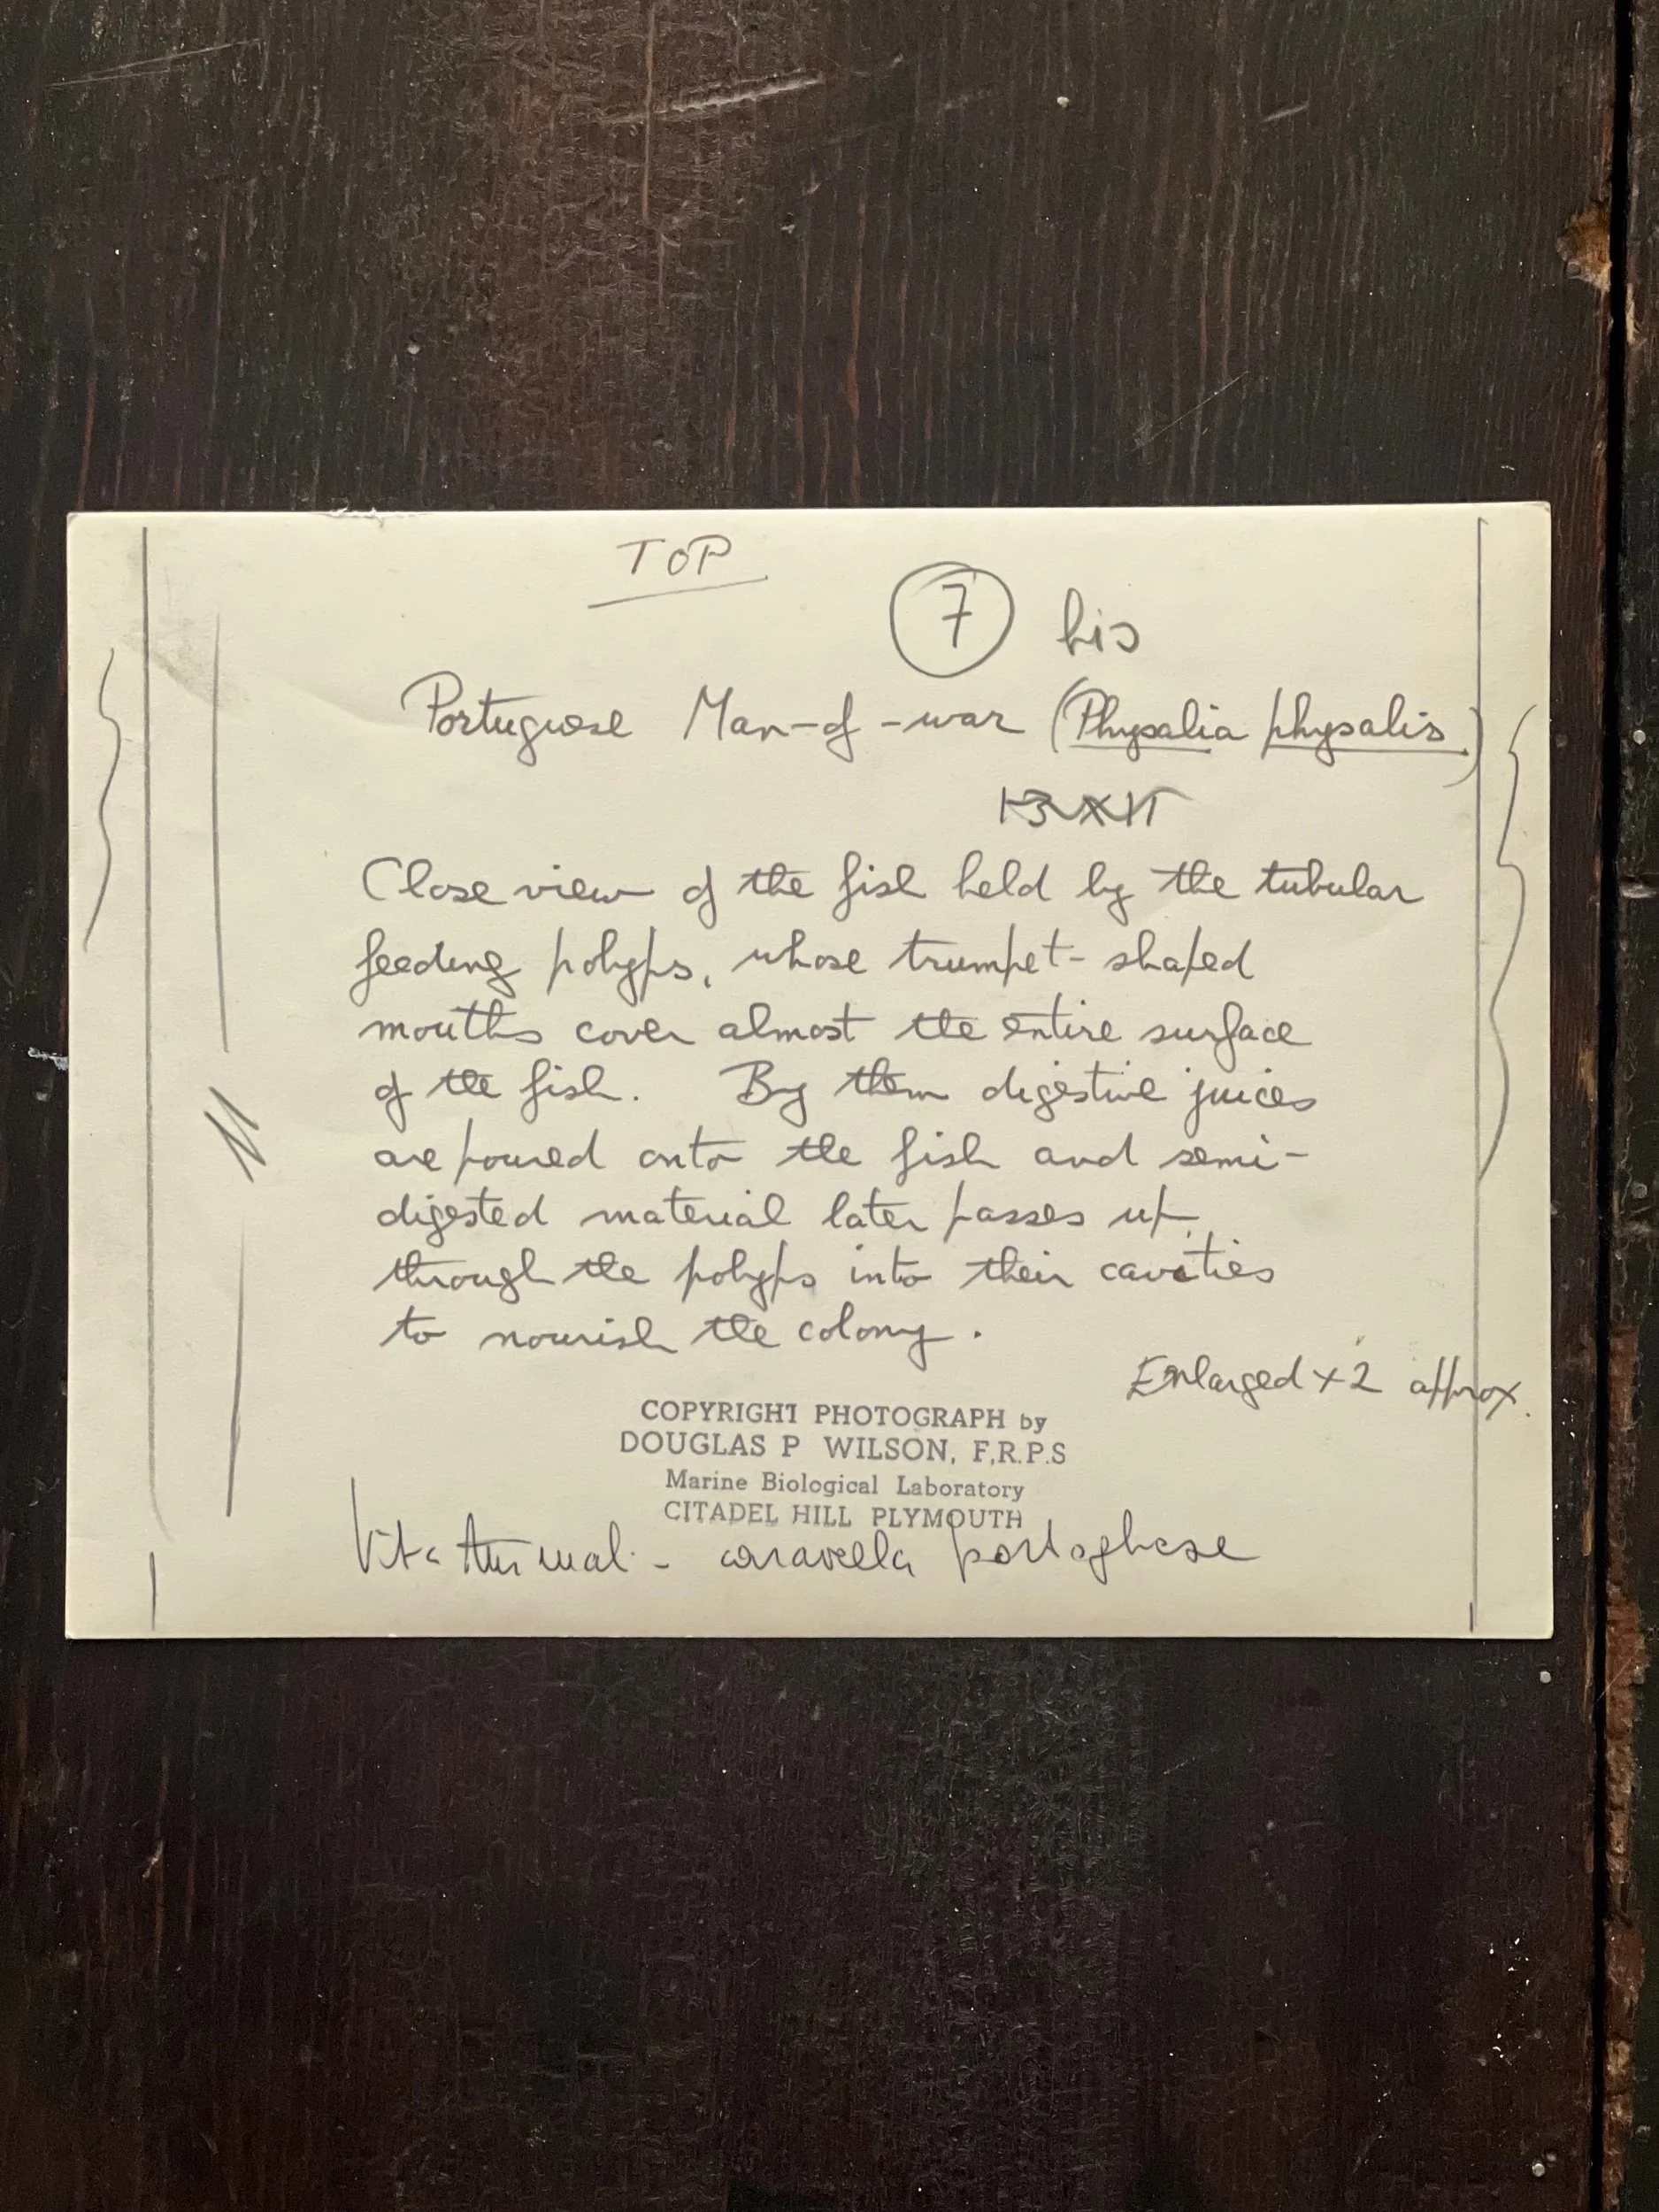 TOP
7 bis
Portuguese Man-of-war (Physalia physalis.)
Close view of the fish held by the tubular
feeding polyps, whose trumpet-shaped
mouths cover almost the entire surface
of the fish. By them digestive juices
are poured onto the fish and semi-
digested material later passes up
through the polyps into their cavities
to nourish the colony.
Enlarged x 2 approx.
COPYRIGHT PHOTOGRAPH by
DOUGLAS P WILSON, F.R.P.S
Marine Biological Laboratory
CITADEL HILL PLYMOUTH
Vita - caravella portoghese